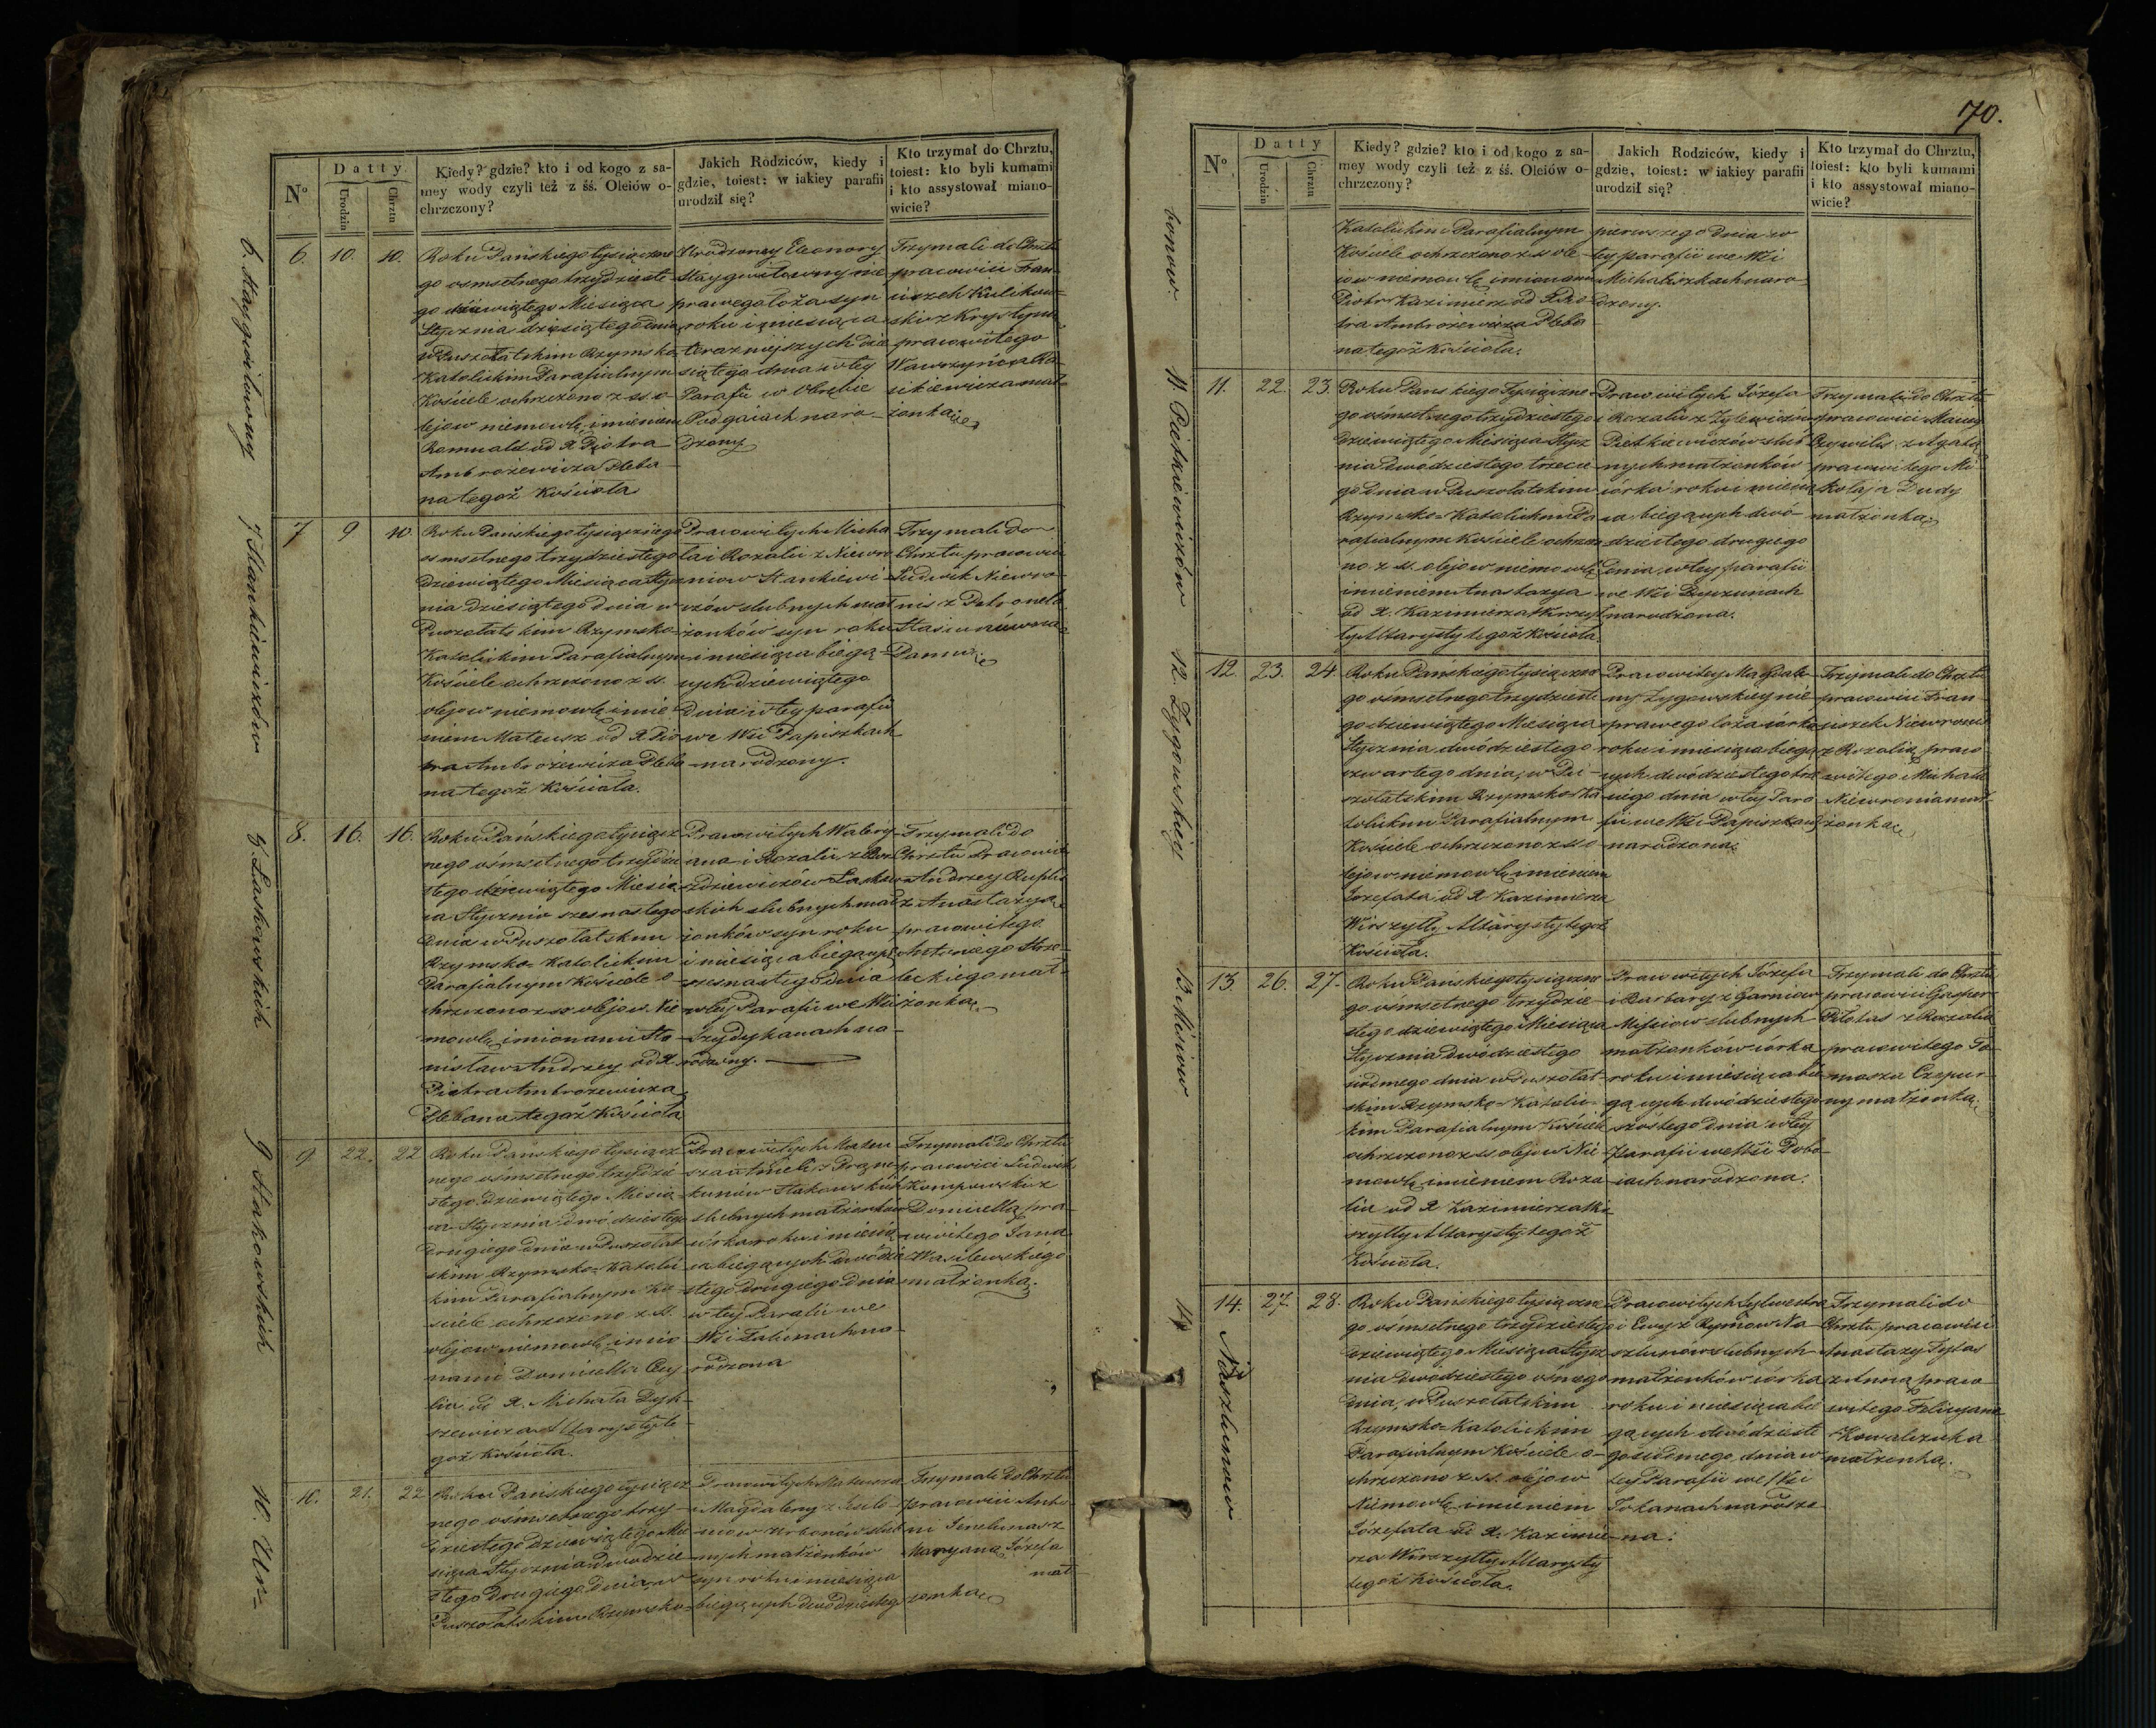 70.
Nº
Datty
Urodzin
Chrztu
Kiedy? gdzie? kto i od kogo z sa-
mey wody czyli też z śś. Oleiów o-
chrzczony?
Jakich Rodziców, kiedy i
gdzie, toiest: w iakiey parafii
urodził się?
Kto trzymał do Chrztu,
toiest: kto byli kumami
i kto assystował miano-
wicie?
6.
10.
10.
Roku Pańskiego tysiączne
go osmsetnego trzydzieste
go dziewiątego Miesiąca
Stycznia dziesiątego dnia
w Puszołatskim Rzymsko
Katolickim Parafialnym
Kościele ochrzczono z ss. o-
lejow niemowlę imieniem
Romuald od X Piotra
Ambrożewicza Pleba-
na tegoż Kościoła
Urodzoney Eleonory
nie
prawego łoża syn
roku i miesiąca
teraznieyszych dzie
siątego dnia w tey
Parafii w Obrębie
Podgaiach naro-
dzony
Trzymali do Chrztu
pracowici Fran-
ciszek Kulikow-
ski z Krystyną
pracowitego
Wawrzyńca
małżonką
7. Stankiewiczów
7
9
10.
Roku Pańskiego tysiącznego
osmsetnego trzydziestego
dziewiątego Miesiąca Stycz
nia dziesiątego dnia w
Puszołatskim Rzymsko-
Katolickim Parafialnym
Kościele ochrzczono z ss.
olejow niemowlę imie-
niem Mateusz od X Pio-
tra Ambrożewicza Pleba-
na tegoż Kościoła.
Pracowitych Micha
ła i Rozalii z Niewro
niow Stankiewi-
czów slubnych mał
żonków syn roku
i miesiąca biegą-
cych dziewiątego
dnia w tey parafii
we Wsi Papiszkach
narodzony.
Trzymali do
Chrztu pracowici
Ludwik Niewro-
nis z Petronelą
Panną
8. Laskowskich
8.
16.
16.
Roku Pańskiego tysiącz
nego ośmsetnego trzydzie
stego dziewiątego Miesią
ca Stycznia szesnastego
dnia w Puszołatskim
Rzymsko-Katolickim
Parafialnym Kościele o-
chrzczono z ss olejow Nie
mowlę imionami Sta-
nisław Andrzey od X.
Piotra Ambrożewicza
Plebana tegoż Kościoła
Pracowitych Walery-
ana i Rozalii
Laskow
skich slubnych mał
żonków syn roku
i miesiąca biegących
szesnastego dnia
w tey Parafii we Wsi
Szydykanach na-
rodzony.
Trzymali do
Chrztu Pracowici
Andrzey
z Anastazyą
pracowitego
Antoniego Strze-
leckiego mał-
żonką
9 Stakowskich
9.
22.
22
Roku Pańskiego tysiącz
nego ośmsetnego trzydzie
stego dziewiątego Miesią
ca Stycznia dwódziestego
drugiego dnia w Puszołat
skim Rzymsko-Katolic
kim Parafialnym Ko-
ściele ochrzczono z ss.
olejow niemowlę imio-
nami Domicella
od X. Michała
Altarysty te-
goż Kościoła.
Pracowitych
Stakowskich
slubnych małżonków
córka roku i miesią
ca biegących dwódzie
stego drugiego dnia
w tey Parafii we
Wsi Talionach na-
rodzona
Trzymali do Chrztu
pracowici Ludwik
Kompowski z
Domicellą pra-
cowitego Jana
Wasilewskiego
małżonką.
10. Ur-
10.
21.
22
Roku Pańskiego tysiącz
nego ośmsetnego trzy-
dziestego dziewiątego Mie
siąca Stycznia dwodzie
stego drugiego dnia w
Puszołatskim Rzymsko-
Pracowitych Mateusza
i Magdaleny
Urbonów slub
nych małżonków
syn roku i miesiąca
biegących dwódziestego
Trzymali do Chrztu
pracowici Anto
ni
Maryaną Józefa
mał-
żonką
bonow.
Katolickim Parafialnym
Kościele ochrzczono z ss ole-
jow niemowlę imionami
Piotr Kazimierz od X Pio-
tra Ambrożewicza Pleba
na tegoż Kościoła.
pierwszego dnia w
tey parafii we Wsi
Michaliszkach naro-
dzony.
11. Pietkiewiczów
11.
22.
23.
Roku Pańskiego Tysiączne
go ośmsetnego trzydziestego
dziewiątego Miesiąca Stycz
nia dwódziestego trzecie
go dnia w Puszołatskim
Rzymsko-Katolickim Pa
rafialnym Kościele ochrzczo
no z ss. olejow niemowlę
imieniem Anastazya
od X. Kazimierza Wirszył
ły Altarysty tegoż Kościoła.
Pracowitych Józefa
i Rozalii z
Pietkiewiczów slub
nych małżonków
córka roku i miesią
ca biegących dwó-
dziestego drugiego
dnia w tey parafii
we Wsi
narodzona.
Trzymali do Chrztu
pracowici
z Agatą
pracowitego Mi-
kołaja Dudy
małżonką
12. Zygowskiey
12.
23.
24.
Roku Pańskiego tysiączne
go ośmsetnego trzydzieste
go dziewiątego Miesiąca
Stycznia dwódziestego
czwartego dnia, w Pu-
szołatskim Rzymsko-Ka
tolickim Parafialnym
Kościele ochrzczono z ss o-
lejow niemowlę imieniem
Jozefata od X Kazimierza
Wirszyłły Altarysty tegoż
Kościoła.
Pracowitey Magdale-
ny Zygowskiey nie
prawego łoża córka
roku i miesiąca biegą
cych dwódziestego trze
ciego dnia w tey Para
fii we Wsi Papiszkach
narodzona.
Trzymali do Chrztu
pracowici Fran-
ciszek Niewronis
z Rozalią praco
witego Michała
Niewronia mał-
żonką
13 Misiow
13
26.
27.
Roku Pańskiego tysiączne
go ośmsetnego trzydzie-
stego dziewiątego Miesiąca
Stycznia dwódziestego
siódmego dnia w Puszołat-
skim Rzymsko-Katolic-
kim Parafialnym Kościele
ochrzczono z ss olejow Nie
mowlę imieniem Roza-
lia od X Kazimierza Wir
szyłły Altarysty tegoż
Kościoła.
Pracowitych Józefa
i Barbary z Garniow
Misiow slubnych
małżonków córka
roku i miesiąca bie
gących dwódziestego
szóstego dnia w tey
Parafii we Wsi Dobo-
iach narodzona.
Trzymali do Chrztu
pracowici Gasper
z Rozalią
pracowitego To-
masza Czepur-
ny małżonką.
14 Naszlunow
14.
27.
28.
Roku Pańskiego tysiączne
go ośmsetnego trzydziestego
dziewiątego Miesiąca Stycz
nia dwodziestego ósmego
dnia, w Puszołatskim
Rzymsko-Katolickim
Parafialnym Kościele o-
chrzczono z ss. olejow
Niemowlę imieniem
Józefata od X. Kazimie-
rza Wirszyłły Altarysty
tegoż Kościoła.
Pracowitych Sylwestra
i Ewy z Rymow Na-
szlunow slubnych
małżonków córka
roku i miesiąca bie
gących dwódzieste
go siódmego dnia w
tey Parafii we Wsi
Jokanach narodzo-
na.
Trzymali do
Chrztu pracowici
Anastazy Tylas
z Anną praco
witego Felicyana
Kowalczuka
małżonką.